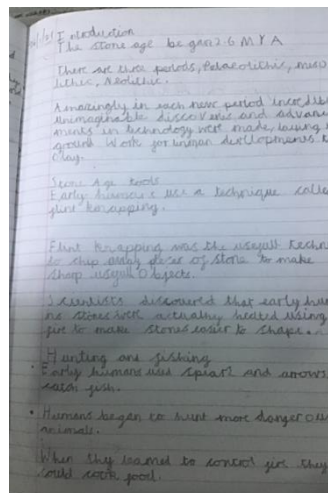 Introduction
The stone age began 2.6 M Y A
There are three periods, Palaeolithic, meso
lithic, Neolithic.
Amazingly in each new period incredib
unimaginable discoveries and advance
ments in technology were made, laying
ground work for human developments t
day.
Stone Age tools
Early humans use a technique calle
flint knapping.
Flint knapping was the usefull techn
to chip away pieces of stone to make
sharp usefull objects.
Scientists discovered that early hum
ns stones were actually heated using
fire to make stones easier to shape.
Hunting and fishing
• Early humans used spears and arrows
catch fish.
• Humans began to hunt more dangerous
animals.
When they learned to control fire they
could cook food.